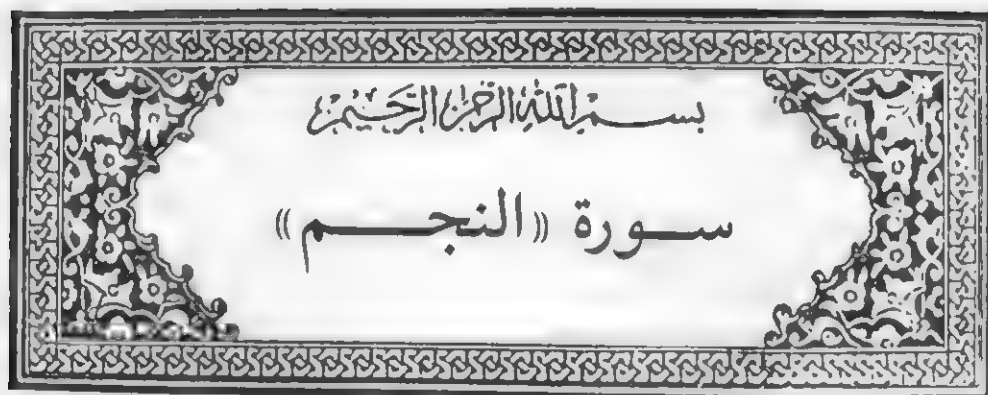 بسم الله الرحمن الرحيم
سورة «النجم»